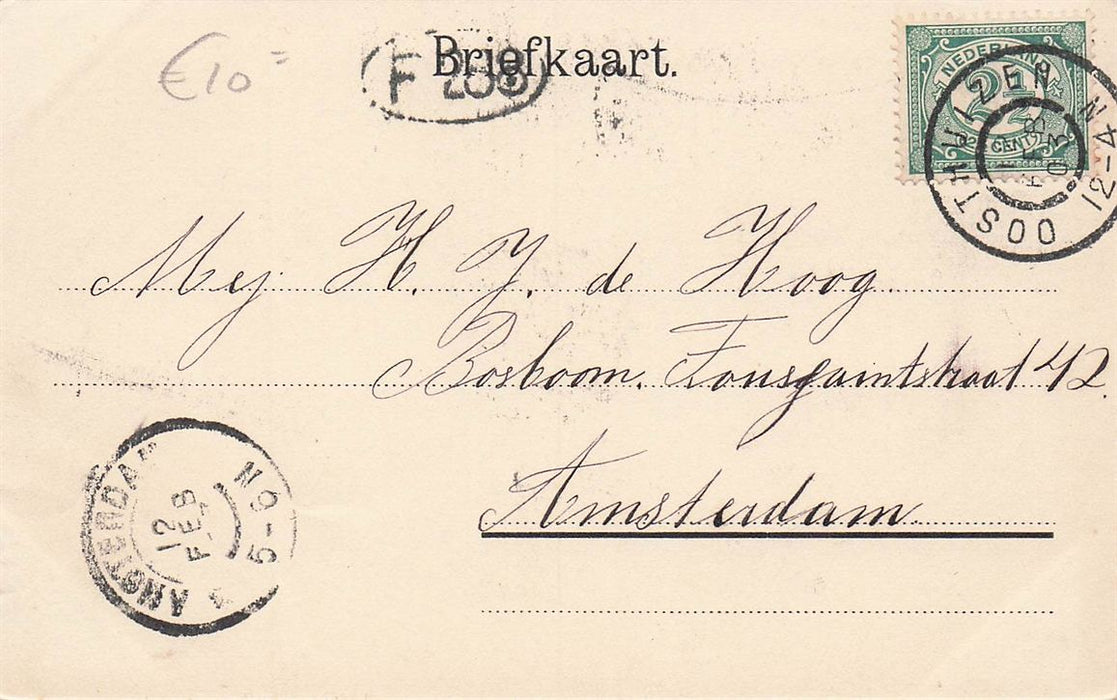 €10=
Briefkaart.
F 288
NEDERLAND
2½
CENT
OOSTHUIZEN
12-4 N
FEB 03
Mej H. J. de Hoog.
Bosboom. Toussaintstraat 42
Amsterdam.
AMSTERDAM
12 FEB
5-6 N